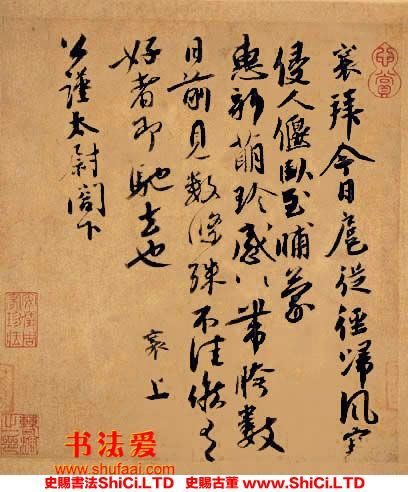 襄拜今日扈從徑歸風寒
侵人偃臥至晡蒙
惠新萌珍感〻帶胯數
日前見數條殊不佳候有
好者即馳去也 襄上
公謹太尉閤下
心賞
书法爱
www.shufaai.com
史賜書法ShiCi.LTD 史賜古董 www.ShiCi.LTD